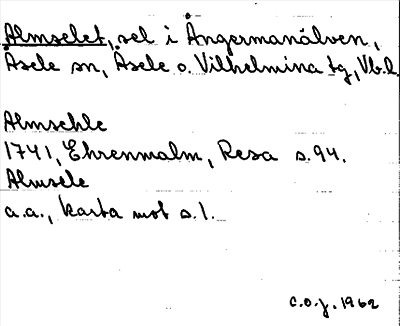 Almselet, sel i Ångermanälven,
Åsele sn, Åsele o. Vilhelmina tg, Vb.l.
Almsehle
1741, Ehrenmalm, Resa s. 94.
Almsele
a.a., karta mot s. 1.
C.O.J. 1962